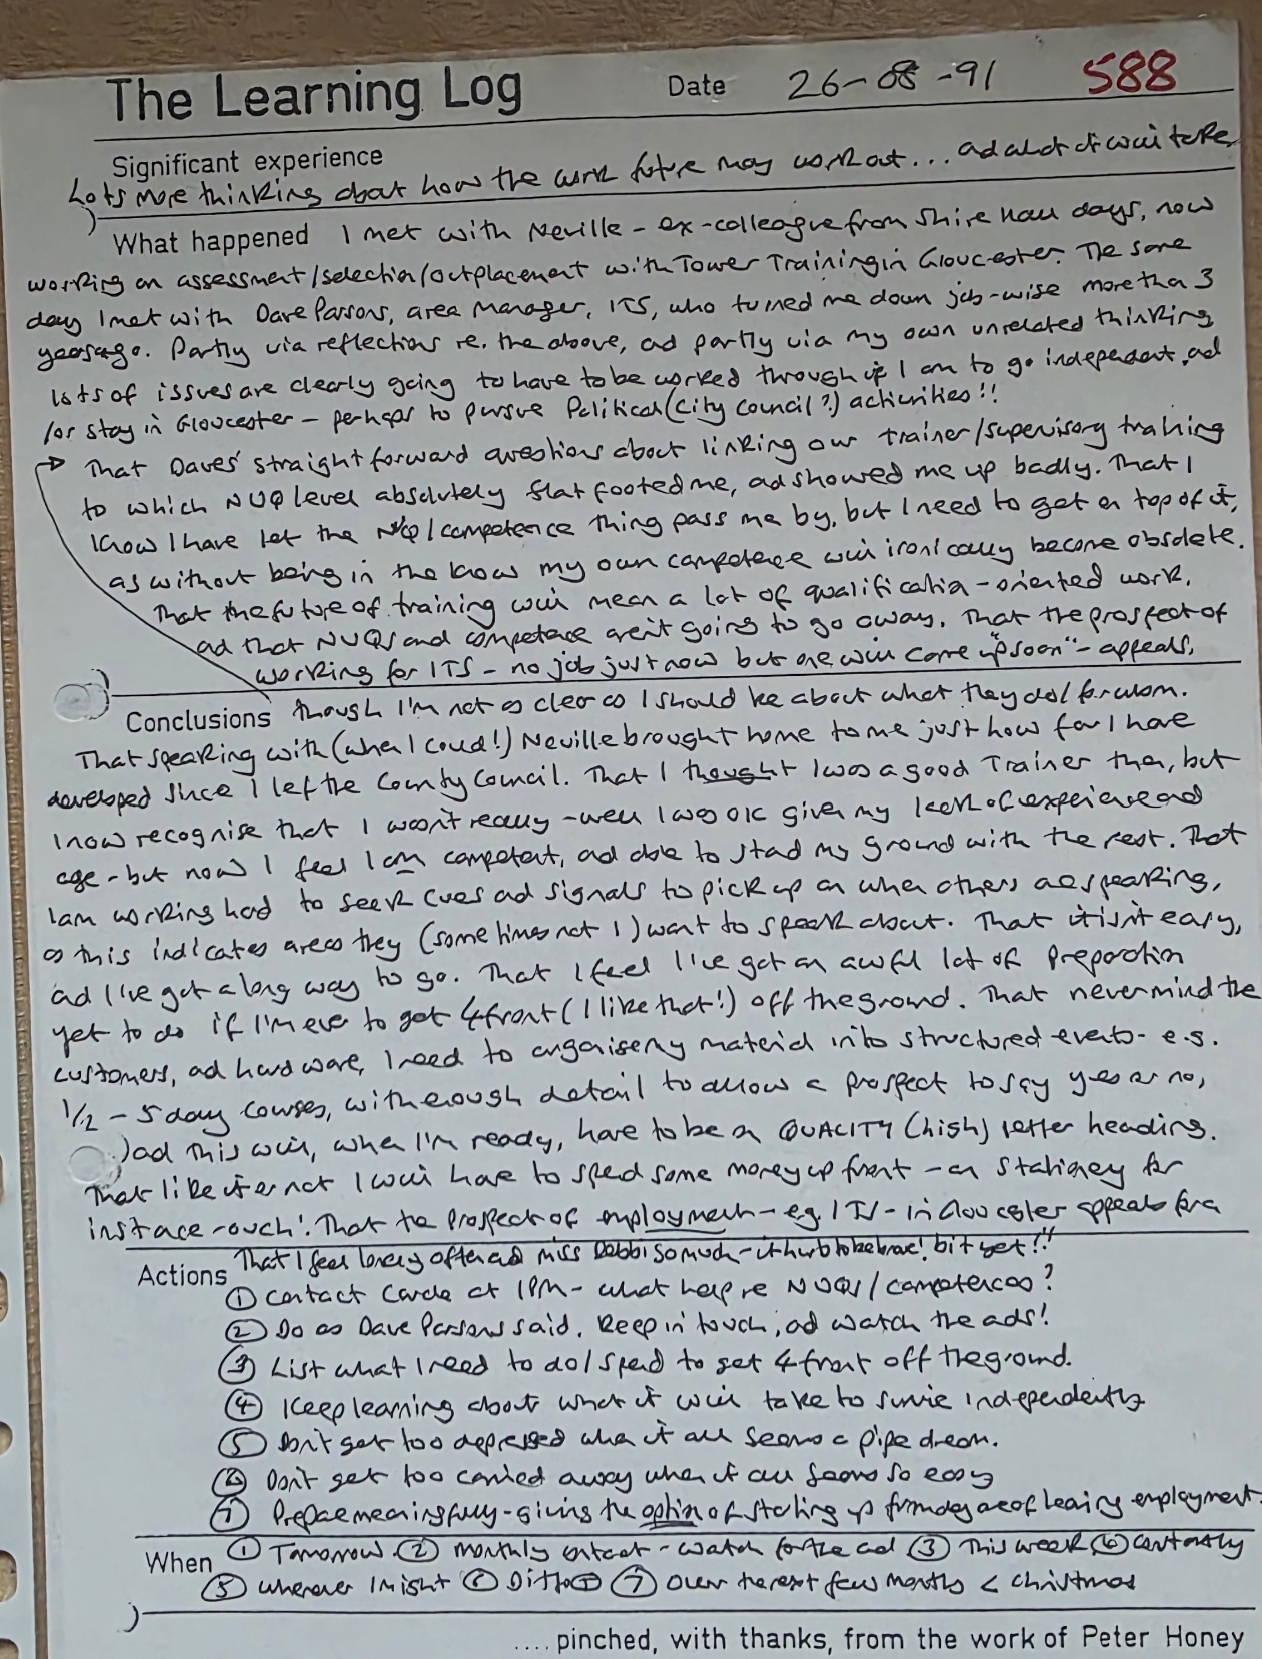 The Learning Log Date 26-08-91 588
Significant experience
Lots more thinking about how the work future may work out... ad what it will take
What happened I met with Neville - ex-colleague from Shire Hall days, now
working on assessment/selection/outplacement with Tower Training in Gloucester. The same
day I met with Dave Parsons, area manager, ITS, who turned me down job-wise more than 3
years ago. Partly via reflections re. the above, ad partly via my own unrelated thinking
lots of issues are clearly going to have to be worked through if I am to go independent, ad
/or stay in Gloucester - perhaps to pursue Political (City Council?) activities!!
That Daves' straightforward questions about linking our trainer/supervisory training
to which NVQ level absolutely flat footed me, ad showed me up badly. That I
know I have let the NVQ/competence thing pass me by, but I need to get on top of it,
as without being in the know my own competence will ironically become obsolete.
That the future of training will mean a lot of qualification-oriented work.
ad that NVQs and competence aren't going to go away. That the prospect of
working for ITS - no job just now but one will come up "soon" - appeals,
Conclusions though I'm not as clear as I should be about what they do/for whom.
That speaking with (when I could!) Neville brought home to me just how far I have
developed since I left the County Council. That I thought I was a good Trainer then, but
I now recognise that I wasn't really - well I was ok given my lack of experience ad
age - but now I feel I am competent, ad able to stad my ground with the rest. That
I am working hard to seek cues ad signals to pick up on when others are speaking,
as this indicates areas they (sometimes not I) want to speak about. That it isn't easy,
ad I've got a long way to go. That I feel I've got an awful lot of preparation
yet to do if I'm ever to get 4front (I like that!) off the ground. That never mind the
customers, ad hardware, I need to organise my material into structured events - e.g.
1/2 - 5 day courses, with enough detail to allow a prospect to say yes or no,
ad this will, when I'm ready, have to be on QUALITY (high) letter heading.
That like it or not I will have to sped some money up front - on stationery for
instace - ouch! That the prospect of employment - eg. ITS - in Gloucester appeals for a
That I feel lonely often ad miss Debbi so much - it hurts to be brave! bit yet!!
Actions
① Contact Carole at IPM - what help re NVQs/competences?
② Do as Dave Parsons said. Keep in touch, ad watch the ads!
③ List what I need to do/sped to get 4front off the ground.
④ Keep learning about what it will take to survive independently
⑤ Don't get too depressed when it all seems a pipe dream.
⑥ Don't get too carried away when it all seems so easy
⑦ Prepare meaningfully - giving the option of starting up from day one of leaving employment.
When ① Tomorrow ② monthly contact - watch for the ad ③ This week ④ Constantly
⑤ whenever I might ⑥ Ditto ⑤ ⑦ Over the next few months < Christmas
.... pinched, with thanks, from the work of Peter Honey